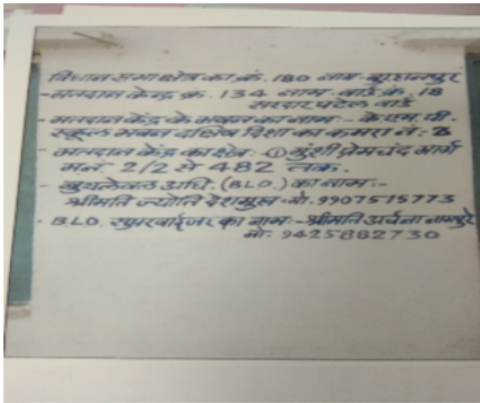 विधान सभा क्षेत्र का क्रं. 180 नाम - बुरहानपुर
- मतदान केन्द्र क्रं. 134 नाम. वार्ड क्रं. 18
सरदार पटेल वार्ड
- मतदान केंद्र के भवन का नाम - के.एम.पी.
स्कूल भवन दक्षिण दिशा का कमरा नं: 3
- मतदान केंद्र का क्षेत्र - ① मुंशी प्रेमचंद मार्ग
म.नं. 2/2 से 482 तक.
- बुथलेवल अधि. (B.L.O.) का नाम :-
श्रीमति ज्योति देशमुख - मो. 9907515773
- B.L.O. सुपरवाईजर का नाम :- श्रीमति अर्चना नामपुरे
मो: 9425882730